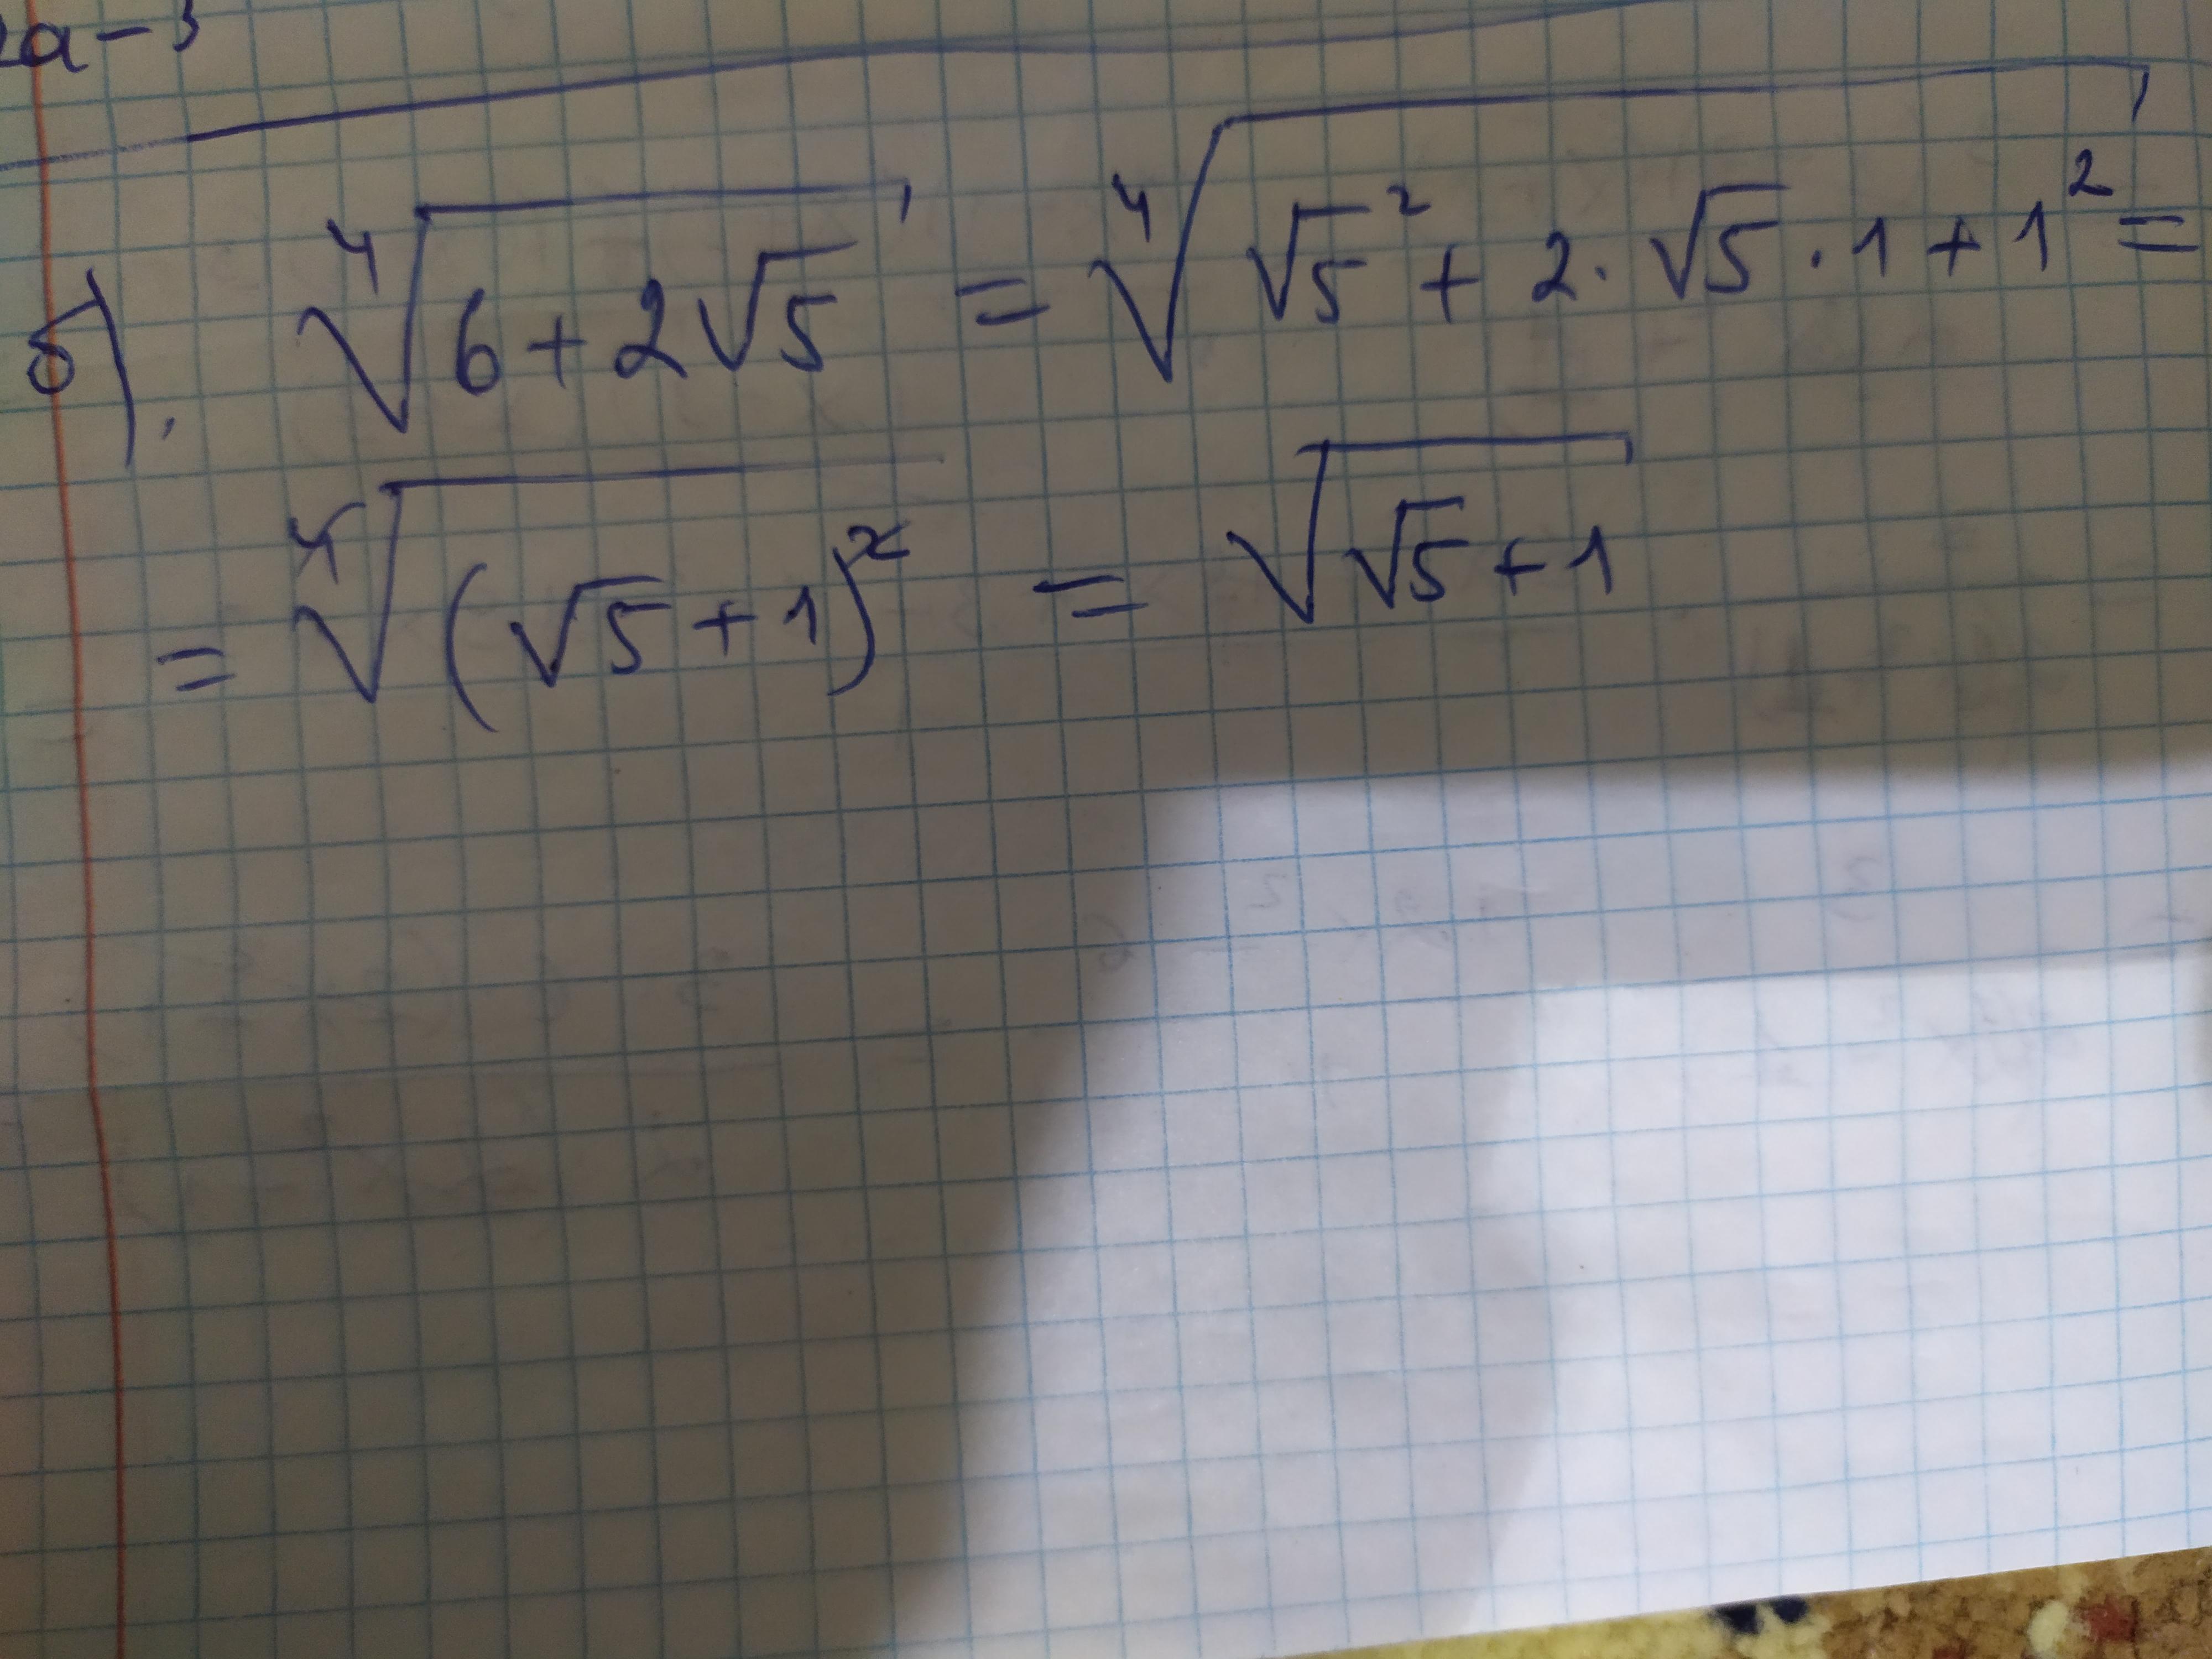 2a-3
б). ⁴√(6+2√5) = ⁴√(√5² + 2·√5·1+1²) =
= ⁴√((√5+1)²) = √(√5+1)